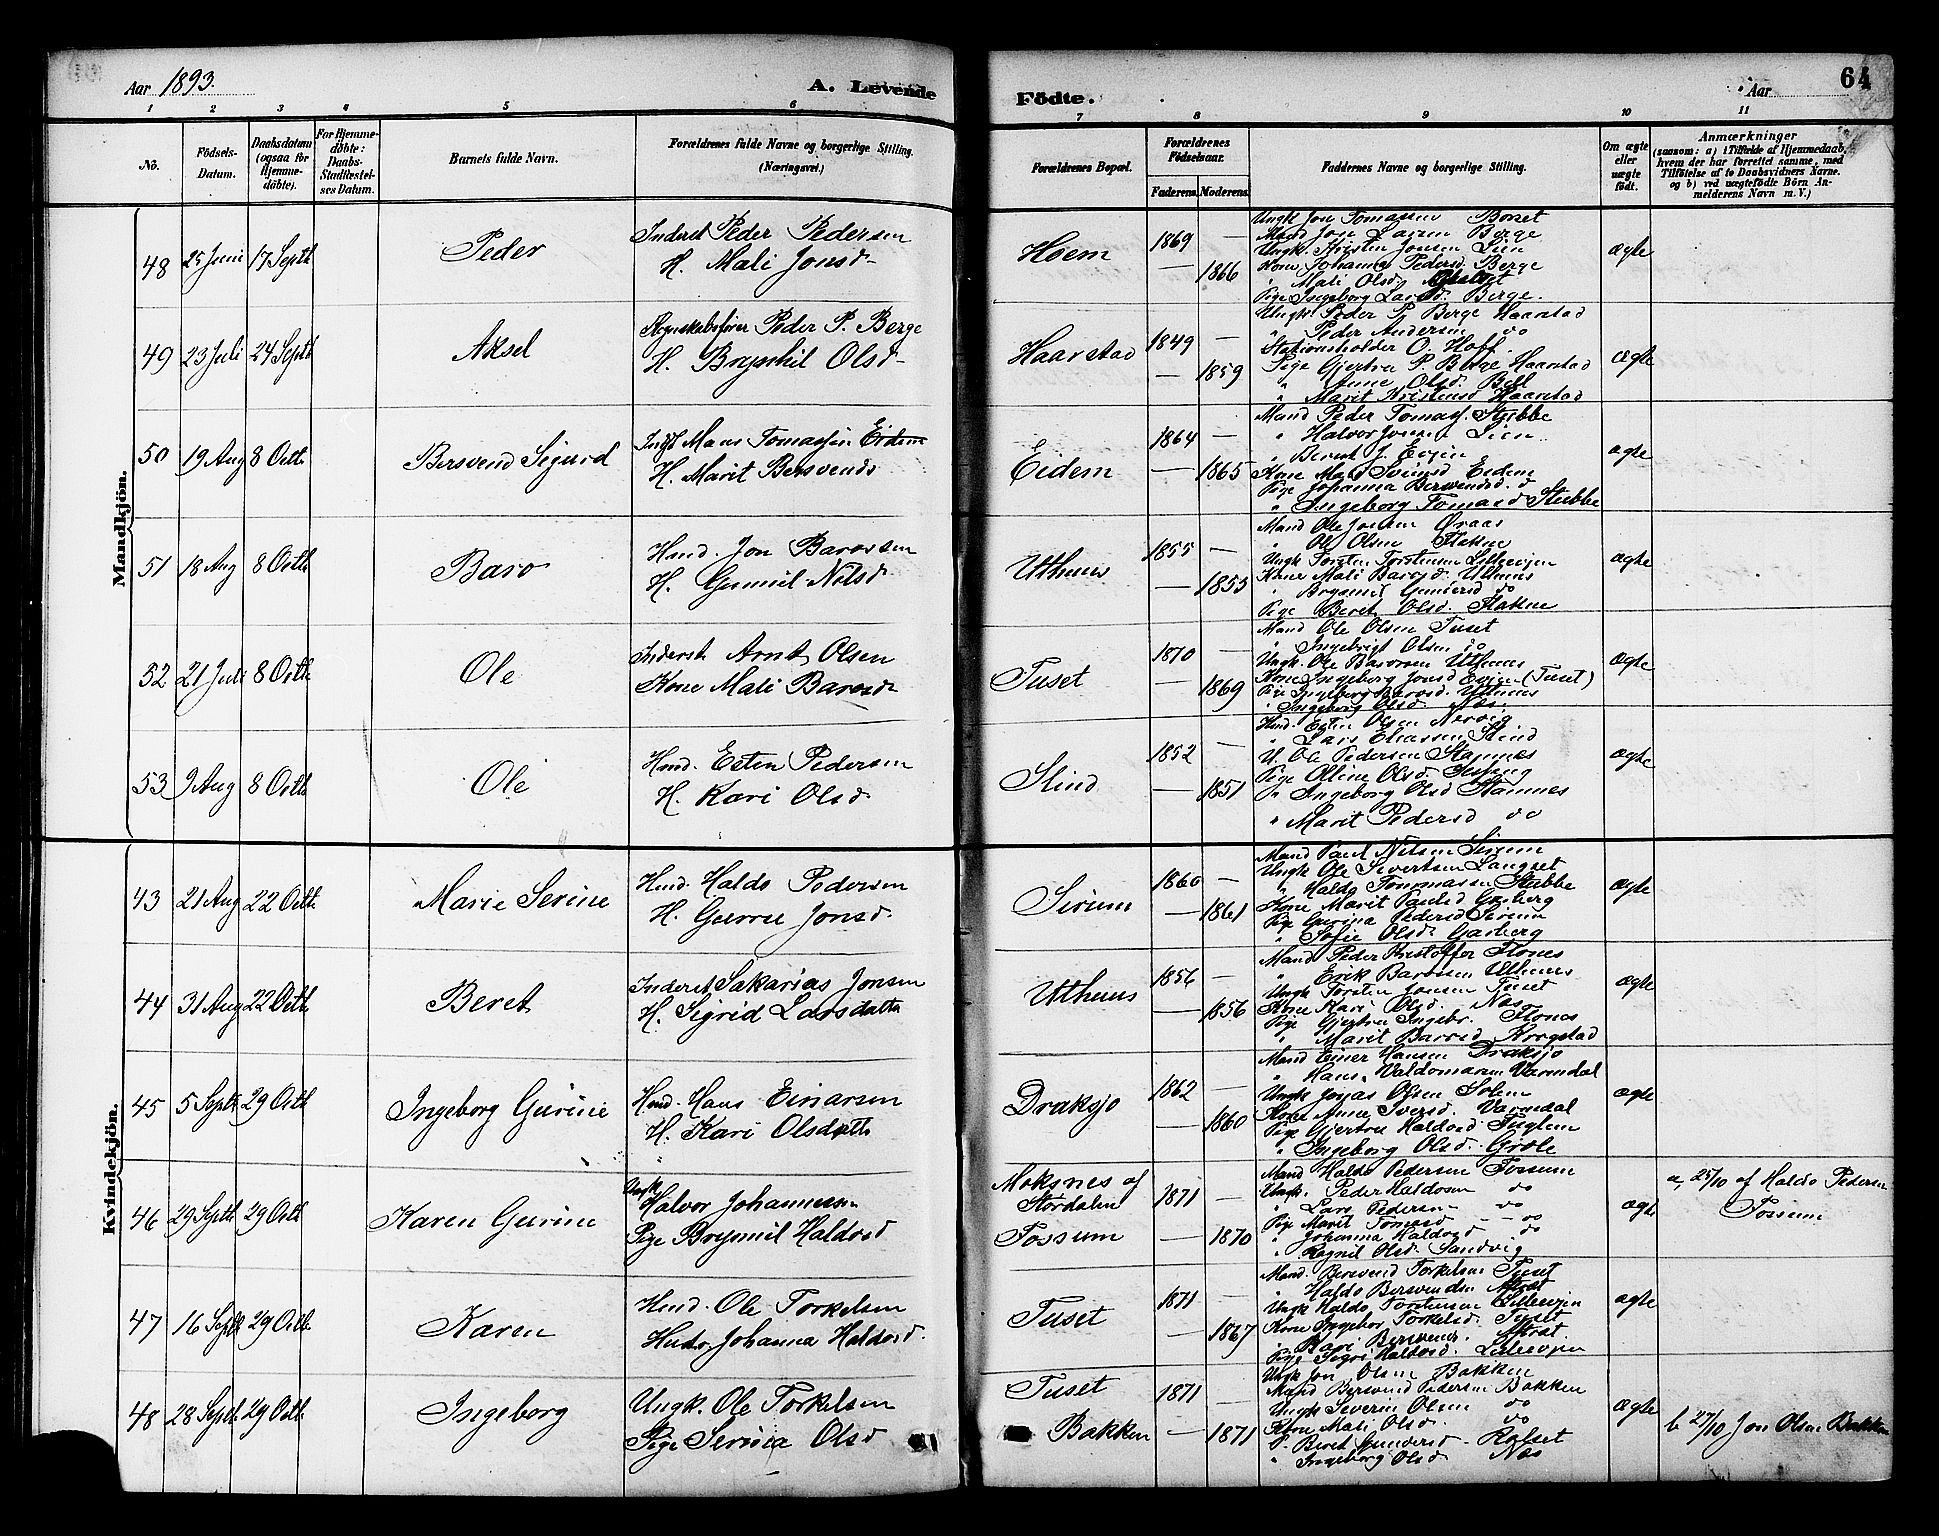 Aar 1893.
A. Levende
Födte.
Aar
64
1 2 3 4 5 6 7 8 9 10 11
No.
Födsels-Datum.
Daabsdatum (ogsaa for Hjemme-döbte).
For Hjemme-döbte: Daabs-Stadfæstel-ses Datum.
Barnets fulde Navn.
Forældrenes fulde Navne og borgerlige Stilling. (Næringsvei.)
Forældrenes Bopæl.
Forældrenes Födselsaar.
Faderens. Moderens.
Faddernes Navne og borgerlige Stilling.
Om ægte eller uægte födt.
Anmærkninger
(saasom: a) i Tilfælde af Hjemmedaab, hvem der har forrettet samme, med Tilföielse af to Daabsvidners Navne. og b) ved uægtefödte Börn An-melderens Navn m. V.)
Mandkjön.
48 25 Juni 17 Septb Peder
Inderst Peder Pedersen
H. Mali Jonsd
Hoem 1869 — — 1866
Ungk Jon Tomassen Borset
Mand Jon Larsen Berge
Ungk Kristen Jonsen Lien
Kone Johanna Pedersd. Berge
" Mali Olsd.
Pige Ingeborg Larsd. Berge.
ægte
49 23 Juli 24 Septb Aksel
Regnskabsfører Peder P. Berge
H. Brynhil Olsd
Haarstad 1849 — — 1859
Ungk. Peder P. Berge Haarstad
" Peder Andersen do
Stationsholder O. Hoff
Pige Gjertru P. Berge Haarstad
" Anne Olsd. Bell
" Marit Kristensd Haarstad
ægte
50 19 Aug 8 Octb. Bersvend Sigurd
Indst Mans Tomassen Eidem
H. Marit Bersvends
Eidem 1864 — — 1865
Mand Peder Tomass. Stubbe
" Halvor Jonsen Lien
" Berent J. Evjen
Kone Mali Sveinsd Eidem
Pige Johanna Bersvendsd. d
" Ingeborg Tomasd Stubbe
ægte
51 18 Aug 8 Octb Baro
Hmd. Jon Baroesen
H. Gunnil Nilsd
Uthuus 1855 — — 1853
Mand Ole Jonsen Øraas
" Ole Olsen Flakne
Ungk Torsten Torstensen Lillevjen
Kone Mali Barosd. Uthuus
" Brynhil Gundersd do
Pige Beret Olsd. Flakne
ægte
52 21 Juli 8 Octb Ole
Inderst. Arnt Olsen
Kone Mali Barosd
Tuset 1870 — — 1869
Mand Ole Olsen Tuset
" Ingebrigt Olsen do
Ungk. Ole Baroesen Uthuus
Kone Ingeborg Jonsd Evjen (Tuset)
Pige Ingeborg Barosd. Uthuus
" Ingeborg Olsd. Næs.
ægte
53 9 Aug 8 Octb Ole
Hmd. Esten Pedersen
H. Kari Olsd
Slind 1852 — — 1851
Hmd. Esten Olsen Nervig
" Lars Eliassen Slind
U. Ole Pedersen Stamnes
Pige Olline Olsd. Sesseng
P. Ingeborg Olsd Stamnes
" Marit Pedersd do
ægte
Kvindekjön.
43 21 Aug 22 Octb. Marie Serine
Hmd. Haldo Pedersen
H. Gurru Jonsd
Sirum 1860 — — 1861
Mand Paul Nilsen Sirum
Ungk Ole Sivertsen Langset
" Haldo Tommassen Stubbe
Kone Marit Paulsd Garberg
Pige Gurina Pedersd Sirum
" Sofie Olsd. Garberg
ægte
44 31 Aug 22 Octb. Beret
Inderst Sakarias Jonsen
H. Sigrid Larsdatter
Uthuus 1856 — — 1856
Mand Peder Kristoffer Flones
" Erik Baroesen Uthuus
Ungk Torsten Jonsen Tuset
Kone Kari Olsd. Næs
Pige Gjertru Ingebr. Flones
" Marit Barosd Krogstad
ægte
45 5 Septb 29 Octb Ingeborg Gurine
Hmd. Hans Einarsen
H. Kari Olsdatter
Draksjo 1862 — — 1860
Mand Einer Hansen Draksjo
" Hans Valdomarsen Varmdal
Ungk Jonas Olsen Solem
Kone Anne Iversd. Varmdal
Pige Gjertru Haldosd Fuglem
" Ingeborg Olsd. Gröte
ægte
46 29 Septb 29 Octb Karen Gurine
Ungk Halvor Johannesen
Pige Brynhil Haldosd
Moksnes af Stördalen
Fossum
1871 — — 1870
Mand Haldo Pedersen Fossum
Ungk. Peder Haldosen do
" Lars Pedersen do
Pige Marit Tomasd do
" Johanna Haldosd do
" Ragnil Olsd. Sandvig
ægte
a, 25/10 af Haldo Pedersen Fossum
47 16 Septb 29 Octb. Karen
Hmd. Ole Torkelsen
Hustr. Johanna Haldosd.
Tuset 1871 — — 1867
Mand. Bersvend Torkelsen Tuset
" Haldo Bersvendsen Aftret
Ungk Haldo Torstensen Lillevjen
Kone Ingebor Torkelsd. Tuset
" Kari Bersvends.
Pige Sigri Haldosd. Lillevjen
ægte
48 28 Septb. 29 Octb. Ingeborg
Ungk. Ole Torkelsen
Pige Serina Olsd
Tuset
Bakken
1871 — — 1871
Ungk Jon Olsen Bakken
Mand Bersvend Pedersen Bakken
Ungk Severin Olsen do
Kone Mali Olsd. do
P. Beret Gundersd. Rolset
" Ingeborg Olsd Næs
ægte
b 27/10 Jon Olsen Bakken